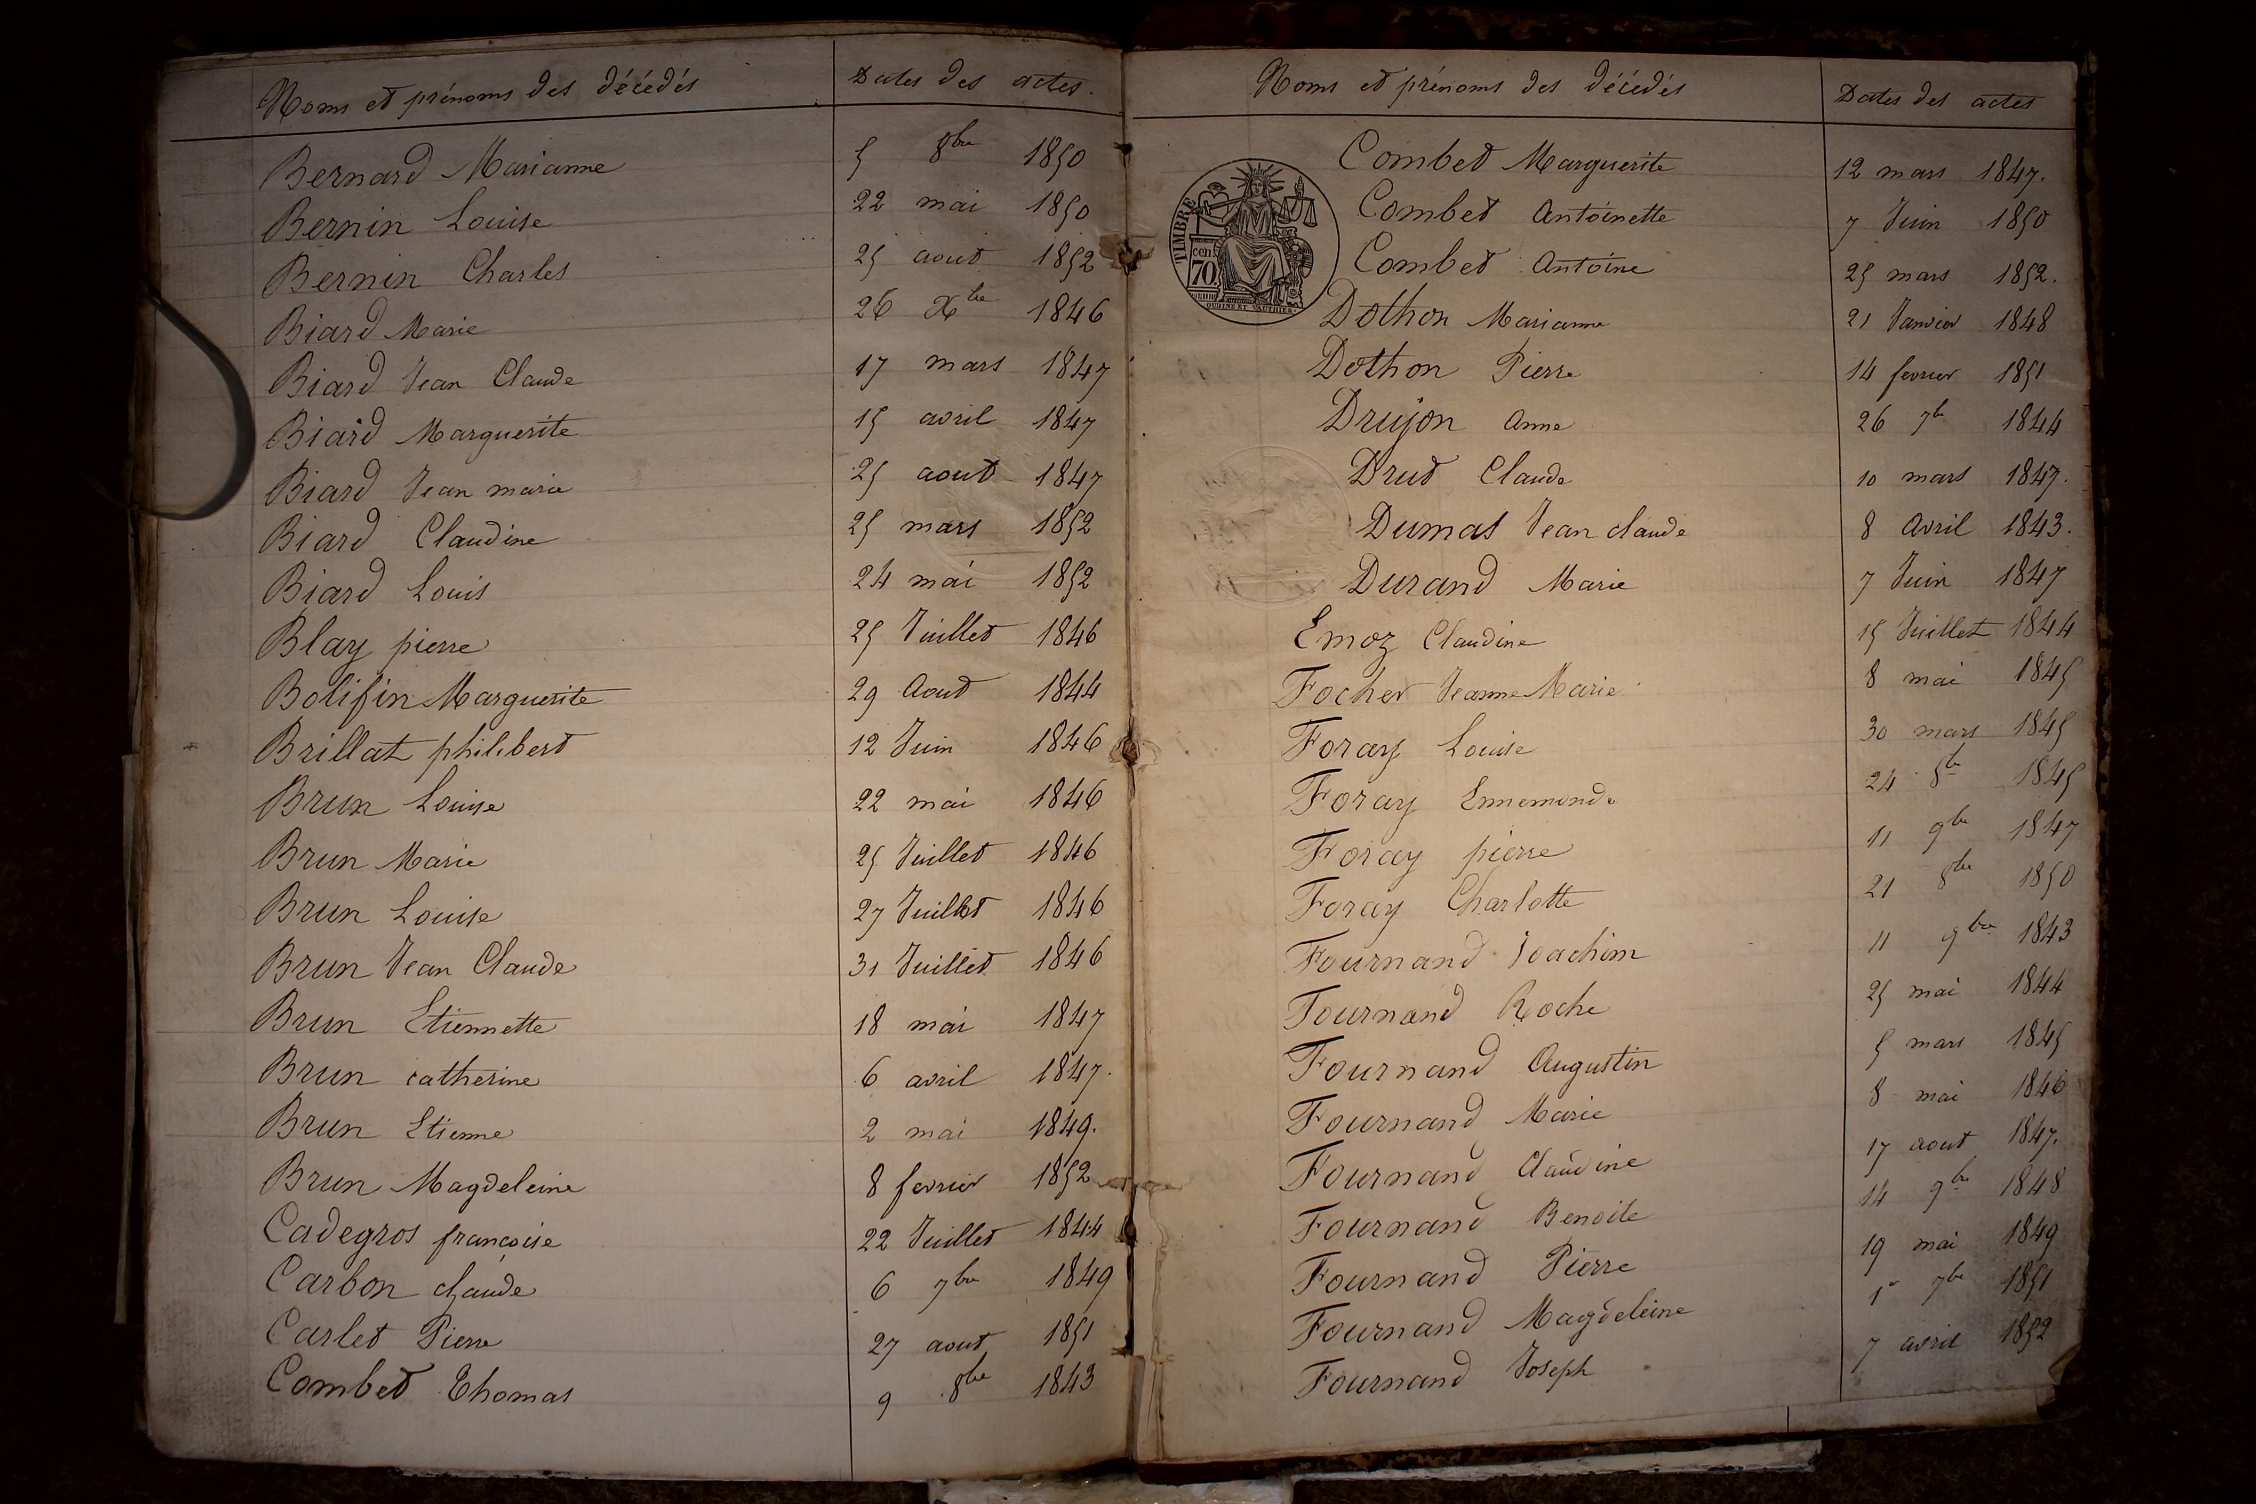 Noms et prénoms des décédés Dates des actes.
Bernard Marianne 5 8bre 1850
Bernin Louise 22 mai 1850
Bernin Charles 25 aout 1852
Biard Marie 26 Xbre 1846
Biard Jean Claude 17 mars 1847
Biard Marguerite 15 avril 1847
Biard Jean marie 25 aout 1847
Biard Claudine 25 mars 1852
Biard Louis 24 mai 1852
Blay pierre 25 Juillet 1846
Bolifin Marguerite 29 Aout 1844
Brillat philibert 12 Juin 1846
Brun Louise 22 mai 1846
Brun Marie 25 Juillet 1846
Brun Louise 27 Juillet 1846
Brun Jean Claude 31 Juillet 1846
Brun Etiennette 18 mai 1847
Brun catherine 6 avril 1847.
Brun Etienne 2 mai 1849.
Brun Magdeleine 8 fevrier 1852
Cadegros françoise 22 Juillet 1844
Carbon claude 6 7bre 1849
Carlet Pierre 27 aout 1851
Combet Thomas 9 8bre 1843
Noms et prénoms des décédés Dates des actes
Combet Marguerite 12 mars 1847.
Combet Antoinette 7 Juin 1850
Combet Antoine 25 mars 1852.
TIMBRE
cen.
70
Dothon Marianne 21 Janvier 1848
Dothon Pierre 14 fevrier 1851
Drujon Anne 26 7bre 1844
Drut Claude 10 mars 1847.
Dumas Jean claude 8 Avril 1843.
Durand Marie 7 Juin 1847
Emoz Claudine 15 Juillet 1844
Focher Jeanne Marie 8 mai 1845
Foray Louise 30 mars 1845
Foray Ennemonde 24 8bre 1845
Foray pierre 11 9bre 1847
Foray Charlotte 21 8bre 1850
Fournand Joachim 11 9bre 1843
Fournand Roche 25 mai 1844
Fournand Augustin 5 mars 1845
Fournand Marie 8 mai 1846
Fournand Claudine 17 aout 1847.
Fournand Benoite 14 9bre 1848
Fournand Pierre 19 mai 1849
Fournand Magdeleine 1er 7bre 1851
Fournand Joseph 7 avril 1852